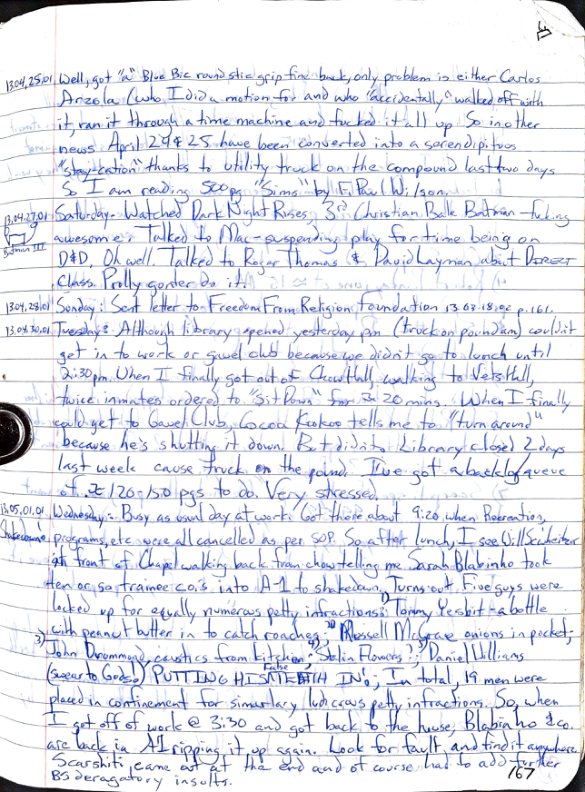 13.04.25.01 Well, got "a" Blue Bic round stic grip fine back, only problem is either Carlos
Arzola (who I did a motion for and who "accidentally" walked off with
it, ran it through a time machine and fucked it all up. So in other
news April 24 & 25 have been converted into a serendipitous
"stay-cation" thanks to utility truck on the compound last two days
So I am reading 500 pg "Sims" by F. Paul Wilson.
13.04.27.01 Saturday: Watched Dark Night Rises, 3rd Christian Bale Batman - fucking
Batman III awesome. Talked to Mac-suspending play for time being on
D&D. Oh well. Talked to Roger Thomas & David Layman about DIRECT
class. Prolly gonter do it.
13.04.28.01 Sunday: Sent letter to Freedom From Religion Foundation 13.03.18.92 p. 161.
13.04.30.01 Tuesday: Although library opened yesterday pm (truck on pound am) couldn't
get in to work or gavel club because we didn't go to lunch until
2:30 pm. When I finally got out of Chow Hall, walking to Vets Hall,
twice inmates ordered to "Sit Down" for 20 mins. When I finally
could get to Gavel Club, Cocoa Kookoo tells me to "turn around"
because he's shutting it down. But didn't. Library closed 2 days
last week cause truck on the pound. I've got a backlog queue
of 120-150 pgs to do. Very stressed.
13.05.01.01 Wednesday: Busy as usual day at work. Got there about 9:20 when Recreation,
Shakedown programs, etc. were all cancelled as per SOP. So after lunch, I see Will
in front of Chapel walking back from chow telling me Sarah Blabinho took
ten or so trainee c.o.'s into A-1 to shakedown. Turns out Five guys were
locked up for equally numerous petty infractions: 1) Tommy Yesbit - a bottle
with peanut butter in to catch roaches; 2) Russell McGraw onions in pocket;
3) John Drummond, caustics from kitchen; 4) Stalin Flowers?; 5) Daniel Williams
(swear to Gods!) PUTTING HIS False TEETH IN!; In total, 19 men were
placed in confinement for similarlay ludicrous petty infractions. So, when
I got off of work @ 3:30 and got back to the house, Blabinho & co.
are back in A1 ripping it up again. Look for fault, and find it anywhere.
Scarshiti came out at the end and of course had to add further
BS deragatory insults.
167